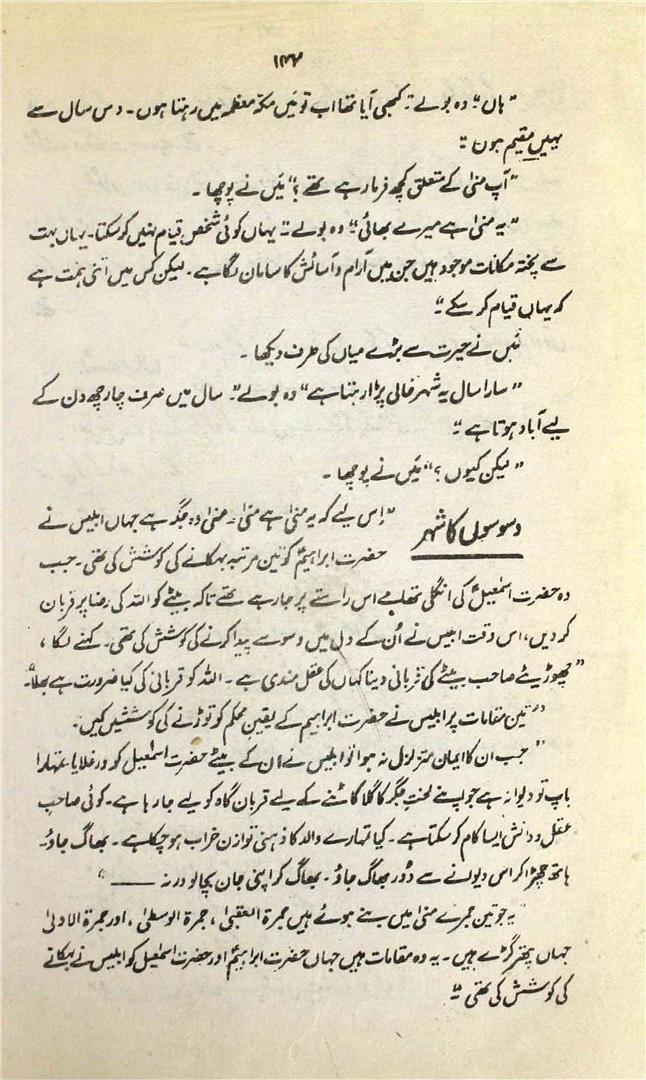 ۱۳۷
"ہاں" وہ بولے "کبھی آیا تھا اب تو میں مکہ معظمہ میں رہتا ہوں۔ دس سال سے
یہیں مقیم ہوں"
"آپ منیٰ کے متعلق کچھ فرما رہے تھے؟" میں نے پوچھا۔
"یہ منیٰ ہے میرے بھائی" وہ بولے "یہاں کوئی شخص قیام نہیں کر سکتا۔ یہاں بہت
سے پختہ مکانات موجود ہیں جن میں آرام و آسائش کا سامان لگا ہے۔ لیکن کس میں اتنی ہمت ہے
کہ یہاں قیام کر سکے"
میں نے حیرت سے بڑے میاں کی طرف دیکھا۔
"سارا سال یہ شہر خالی پڑا رہتا ہے" وہ بولے "سال میں صرف چار چھ دن کے
لیے آباد ہوتا ہے"
"لیکن کیوں؟" میں نے پوچھا۔
وسوسوں کا شہر
"اس لیے کہ یہ منیٰ ہے منیٰ۔ منیٰ وہ جگہ ہے جہاں ابلیس نے
حضرت ابراہیمؑ کو تین مرتبہ بہکانے کی کوشش کی تھی۔ جب
وہ حضرت اسمٰعیلؑ کی انگلی تھامے اس راستے پر جا رہے تھے تاکہ بیٹے کو اللہ کی رضا پر قربان
کر دیں، اس وقت ابلیس نے اُن کے دل میں وسوسے پیدا کرنے کی کوشش کی تھی۔ کہنے لگا،
"چھوڑیئے صاحب بیٹے کی قربانی دینا کہاں کی عقل مندی ہے۔ اللہ کو قربانی کی کیا ضرورت ہے بھلا"۔
"تین مقامات پر ابلیس نے حضرت ابراہیم کے یقینِ محکم کو توڑنے کی کوششیں کیں۔
"جب ان کا ایمان متزلزل نہ ہوا تو ابلیس نے ان کے بیٹے حضرت اسمٰعیل کو ورغلایا۔ تمہارا
باپ تو دیوانہ ہے جو اپنے لختِ جگر کا گلا کاٹنے کے لیے قربان گاہ کو لیے جا رہا ہے۔ کوئی صاحبِ
عقل و دانش ایسا کام کر سکتا ہے۔ کیا تمہارے والد کا ذہنی توازن خراب ہو چکا ہے۔ بھاگ جاؤ۔
ہاتھ چھڑا کر اس دیوانے سے دُور بھاگ جاؤ۔ بھاگ کر اپنی جان بچا لو ورنہ ——"
"یہ جو تین جمرے منیٰ میں بنے ہوئے ہیں جمرۃ العقبیٰ، جمرۃ الوسطیٰ، اور جمرۃ الاولیٰ
جہاں پتھر گڑے ہیں۔ یہ وہ مقامات ہیں جہاں حضرت ابراہیمؑ اور حضرت اسمٰعیل کو ابلیس نے بہکانے
کی کوشش کی تھی"